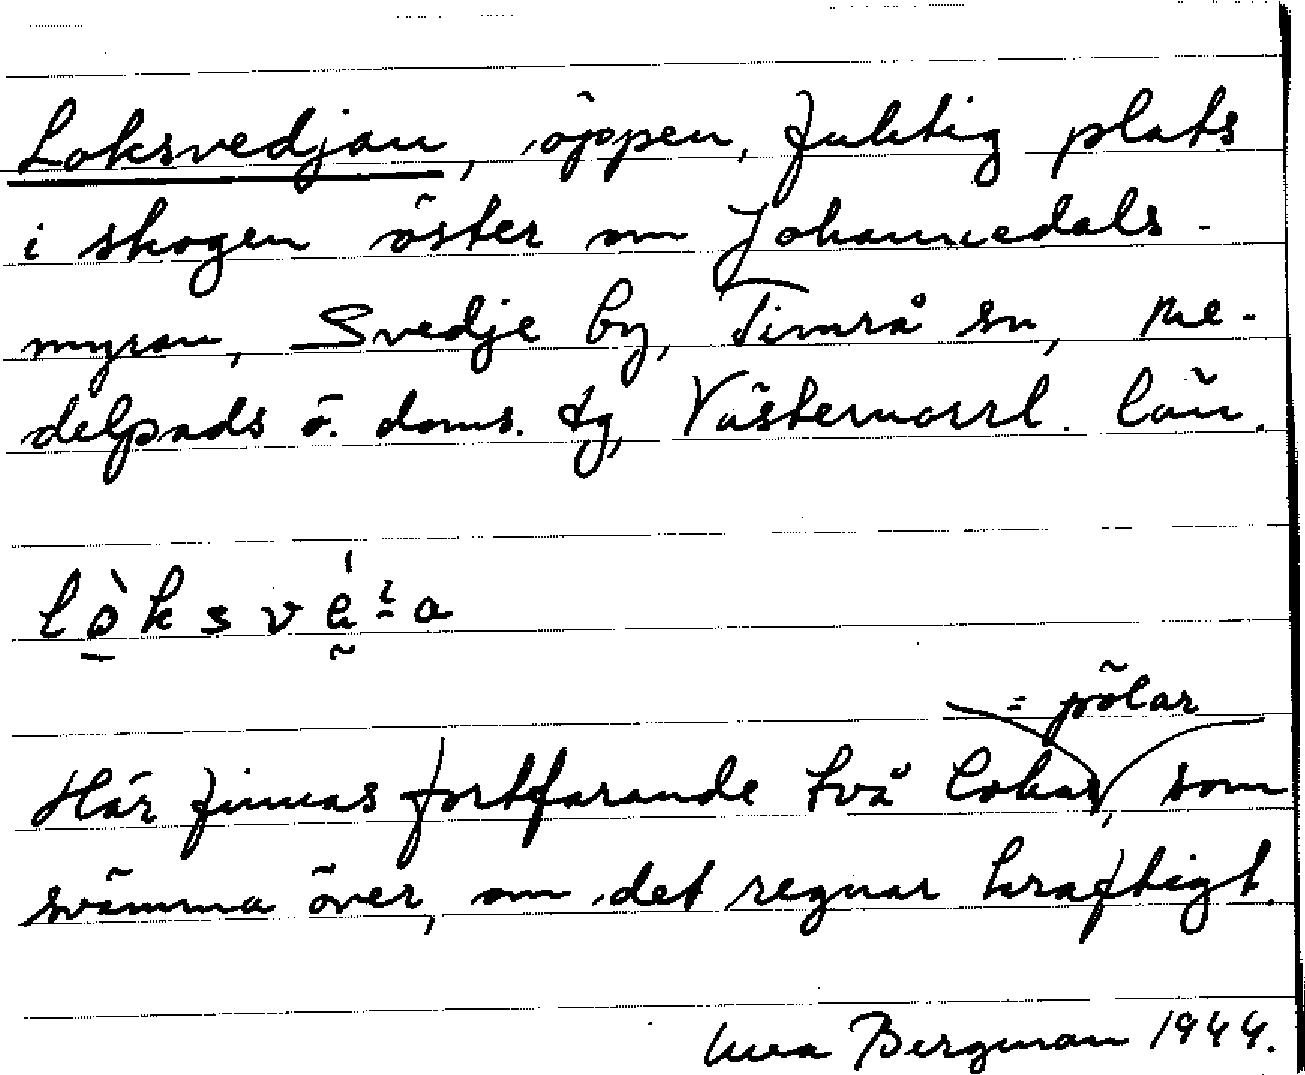 Loksvedjan, öppen, fuktig plats
i skogen öster om Johannedals-
myran, Svedje by, Timrå sn, Me-
delpads ö. doms. tg, Västernorrl. län.
= pölar
Här finnas fortfarande två lokar, som
svämma över, om det regnar kraftigt.
Bergman 1944.